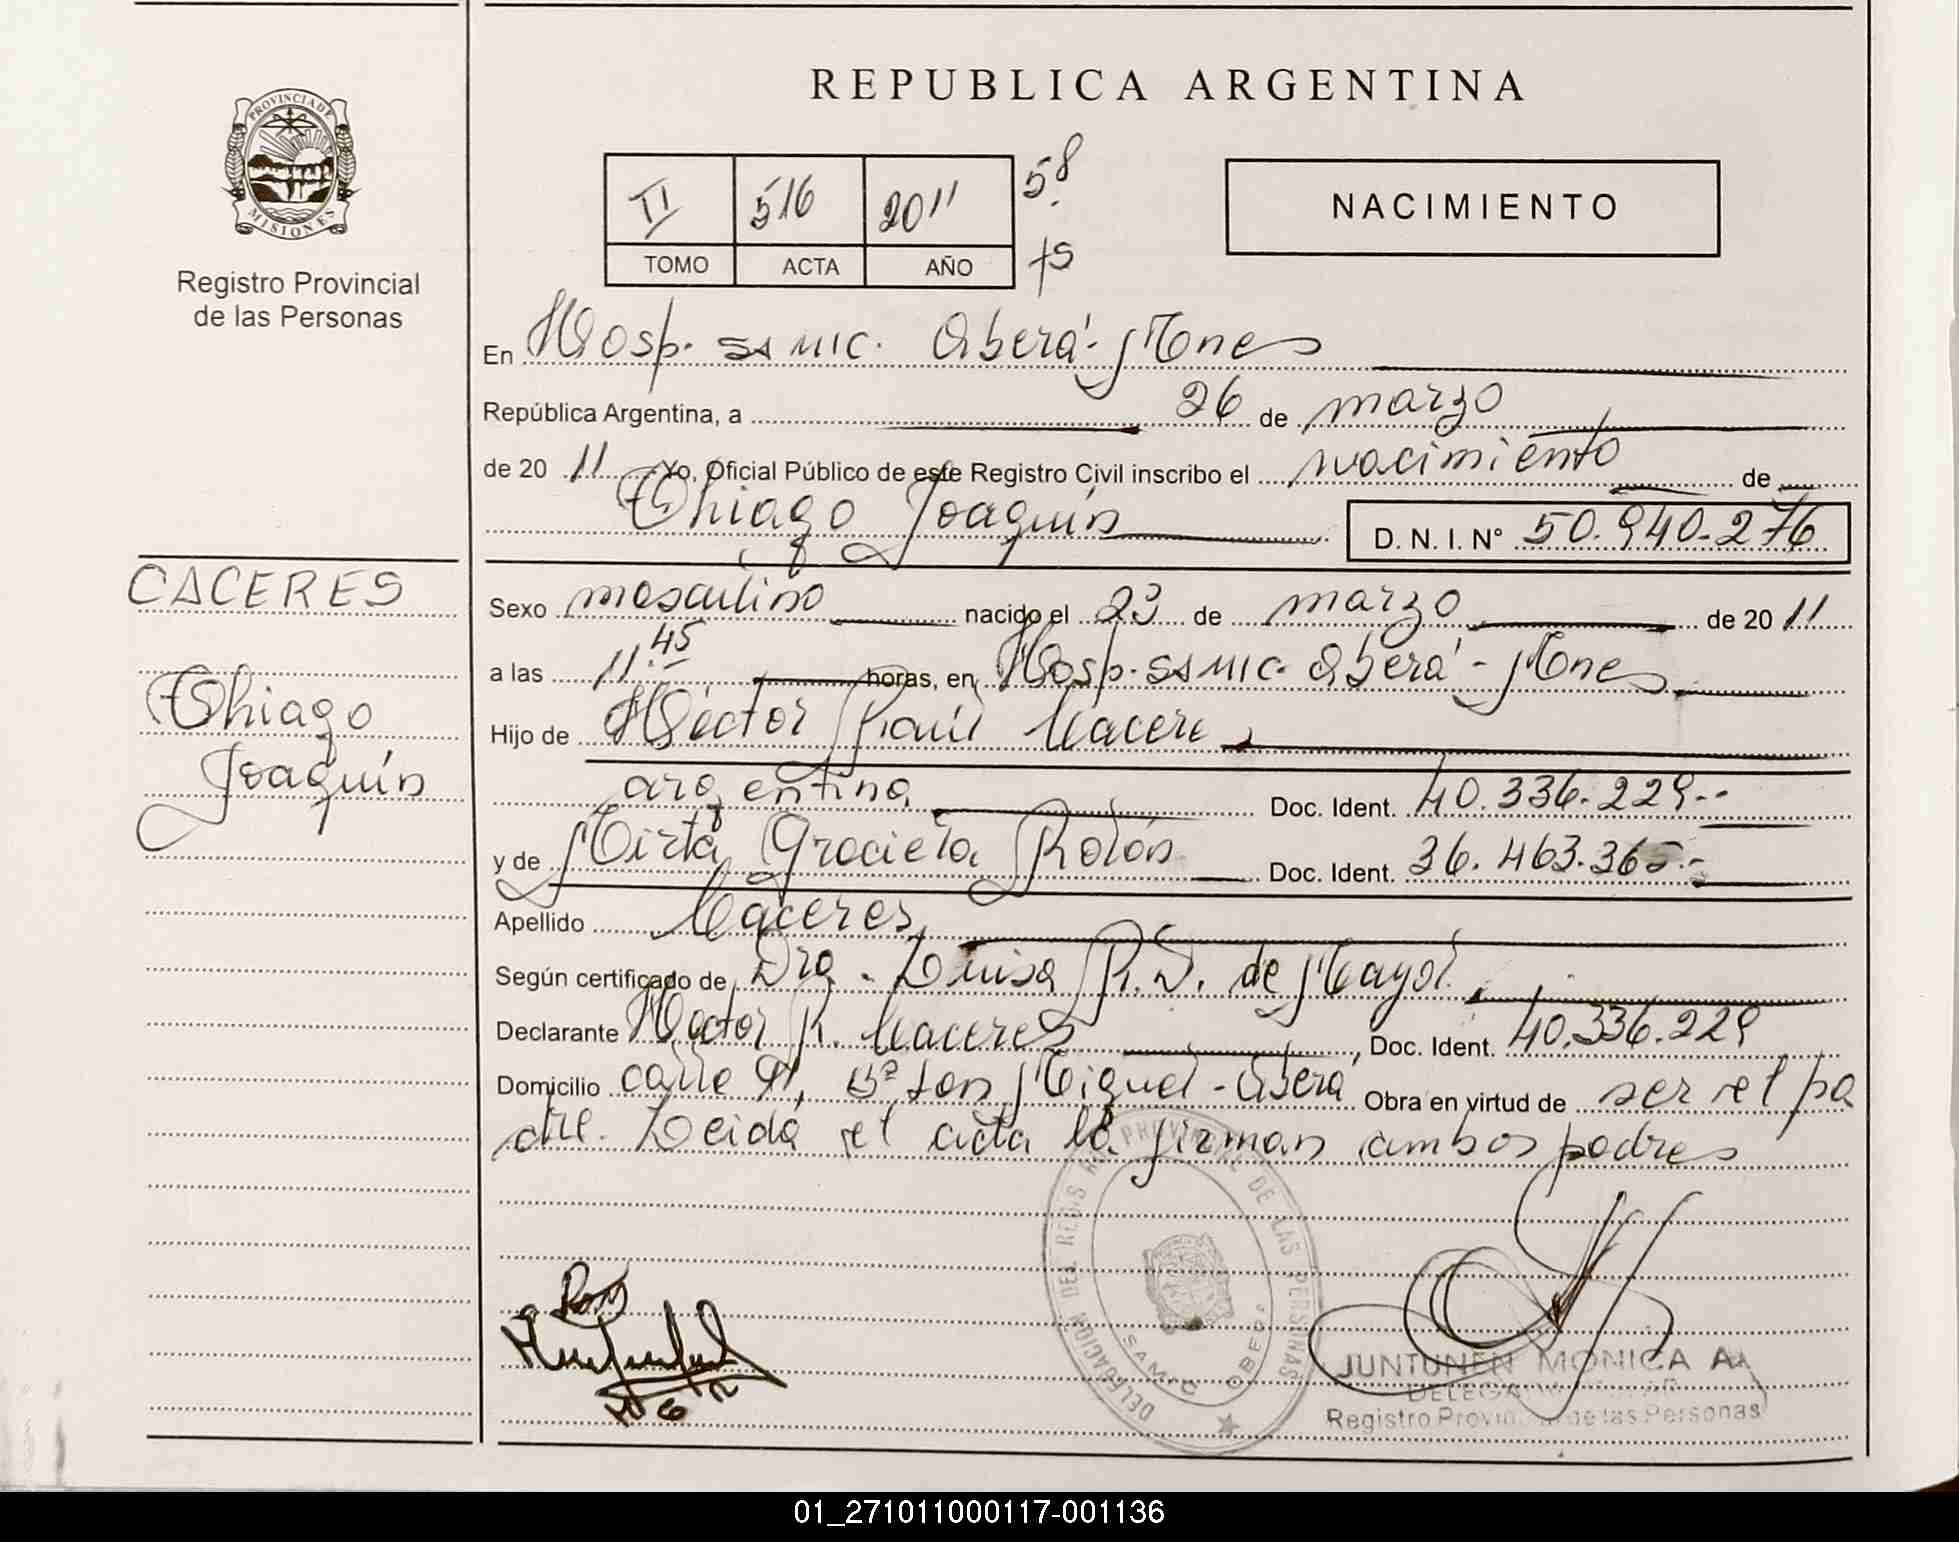 REPUBLICA ARGENTINA
PROVINCIA DE MISIONES
Registro Provincial
de las Personas
II 516 2011 58
TOMO ACTA AÑO
NACIMIENTO
En Hosp. SAMIC. Oberá - Mones
República Argentina, a 26 de marzo
de 20 11 Yo, Oficial Público de este Registro Civil inscribo el nacimiento de
Thiago Joaquín D. N. I. N° 50.940.276
CACERES
Thiago
Joaquín
Sexo masculino nacido el 23 de marzo de 20 11
a las 11.45 horas, en Hosp. SAMIC. Oberá - Mones
Hijo de Héctor Raúl Caceres
argentina Doc. Ident. 40.336.229.-
y de Mirta Graciela Rolón Doc. Ident. 36.463.365.-
Apellido Caceres
Según certificado de Dra. Luisa R.D. de Mayol
Declarante Hector R. Caceres, Doc. Ident. 40.336.229
Domicilio calle 91, Bº San Miguel - Oberá Obra en virtud de ser el pa
dre. Leida el acta la firman ambos padres
DELEGACION DEL REGISTRO PROVINCIAL DE LAS PERSONAS
SAMIC OBERA
JUNTUNEN MONICA A.
Registro Provincial de las Personas
01_271011000117-001136